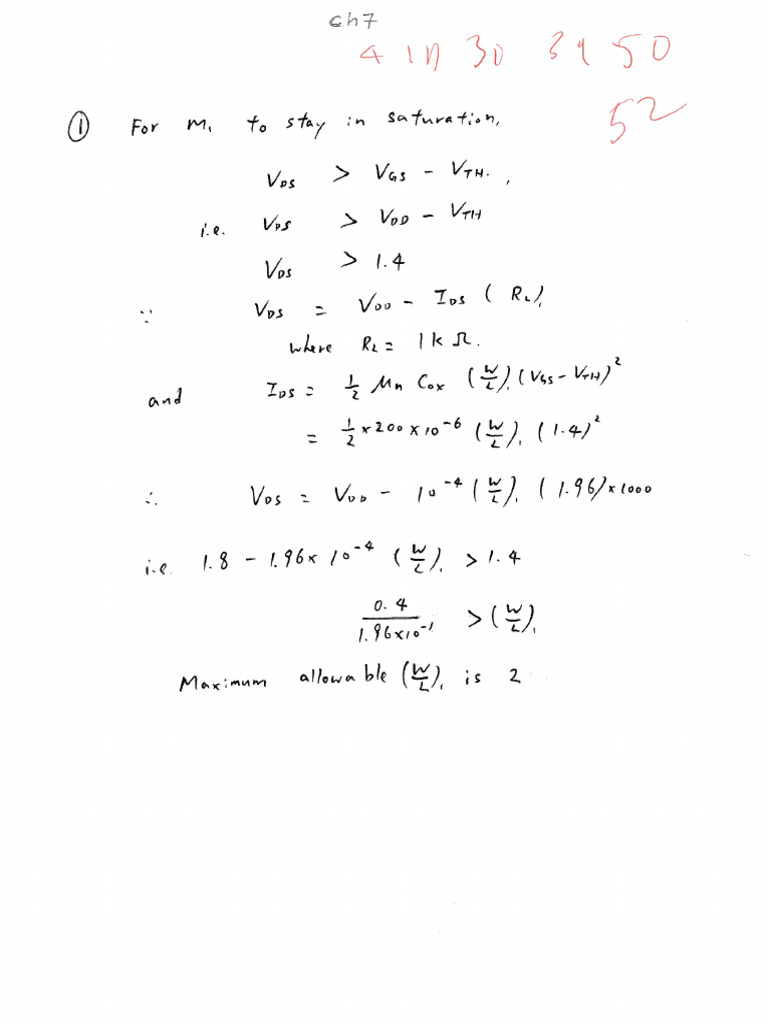 ch7
4 30 34 50
52
① For M₁ to stay in saturation,
V_DS > V_GS - V_TH.,
i.e. V_DS > V_DD - V_TH
V_DS > 1.4
∵ V_DS = V_DD - I_DS (R_L),
where R_L = 1kΩ.
and I_DS = 1/2 Mn Cox (W/L)₁ (V_GS - V_TH)²
= 1/2 × 200 × 10⁻⁶ (W/L)₁ (1.4)²
∴ V_DS = V_DD - 10⁻⁴ (W/L)₁ (1.96) × 1000
i.e. 1.8 - 1.96 × 10⁻⁴ (W/L)₁ > 1.4
0.4 / 1.96×10⁻¹ > (W/L)₁
Maximum allowable (W/L)₁ is 2